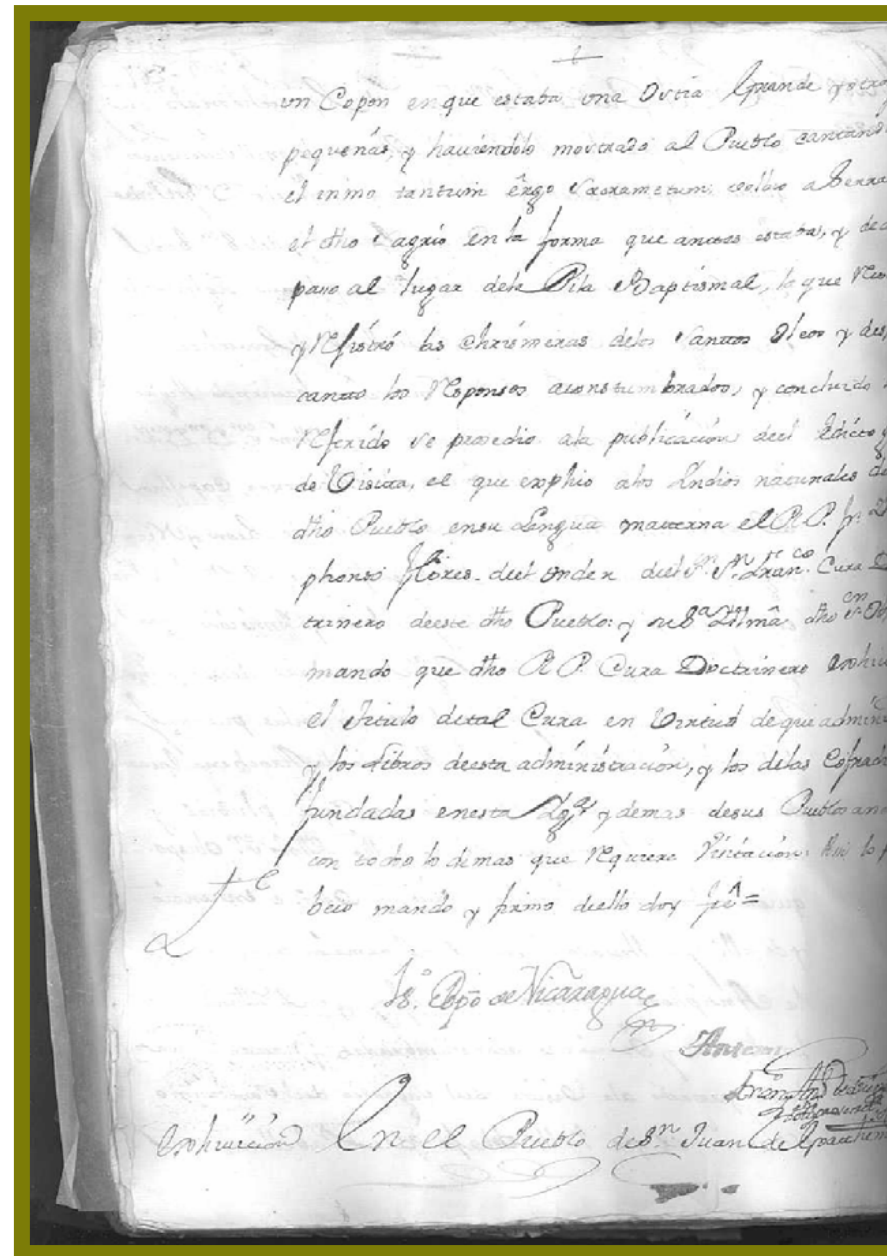 un Copon en que estaba una Ostia Grande y otra
pequeñas, y haviendolo mostrado al Pueblo cantando
el inmo tantum ergo Sacrametum, volbio a Serra
el dho Sagrio en la forma que antes estaba, y de
paso al lugar dela Pila Baptismal, la que
y Registró las Chrismeras delos Santos Oleos y des
canto los Responsos aconstumbrados, y concluido
Referido se prosedio ala publicacion deel Edicto
de Visita, el que explico a los Indios naturales de
dho Pueblo ensu Lengua materna el R. P. fr.
phonso Flores. deel orden deel S.r S.n Fran.co Cura
trinero deeste dho Pueblo: y su S.a Illmâ. dho S.or
mando que dho R. P. Cura Doctrinero
el Titulo detal Cura en Virtud de que admini
y los Libros deesta administracion, y los delas Cofradi
fundadas enesta Ygª y demas desus Pueblos
con todo lo demas que Requiere Visitacion. Asi lo
beio mando y firmo deello doy feê =
Obpo de Nicaragua
Antemi
Exhivicion En el Pueblo de S.n Juan de